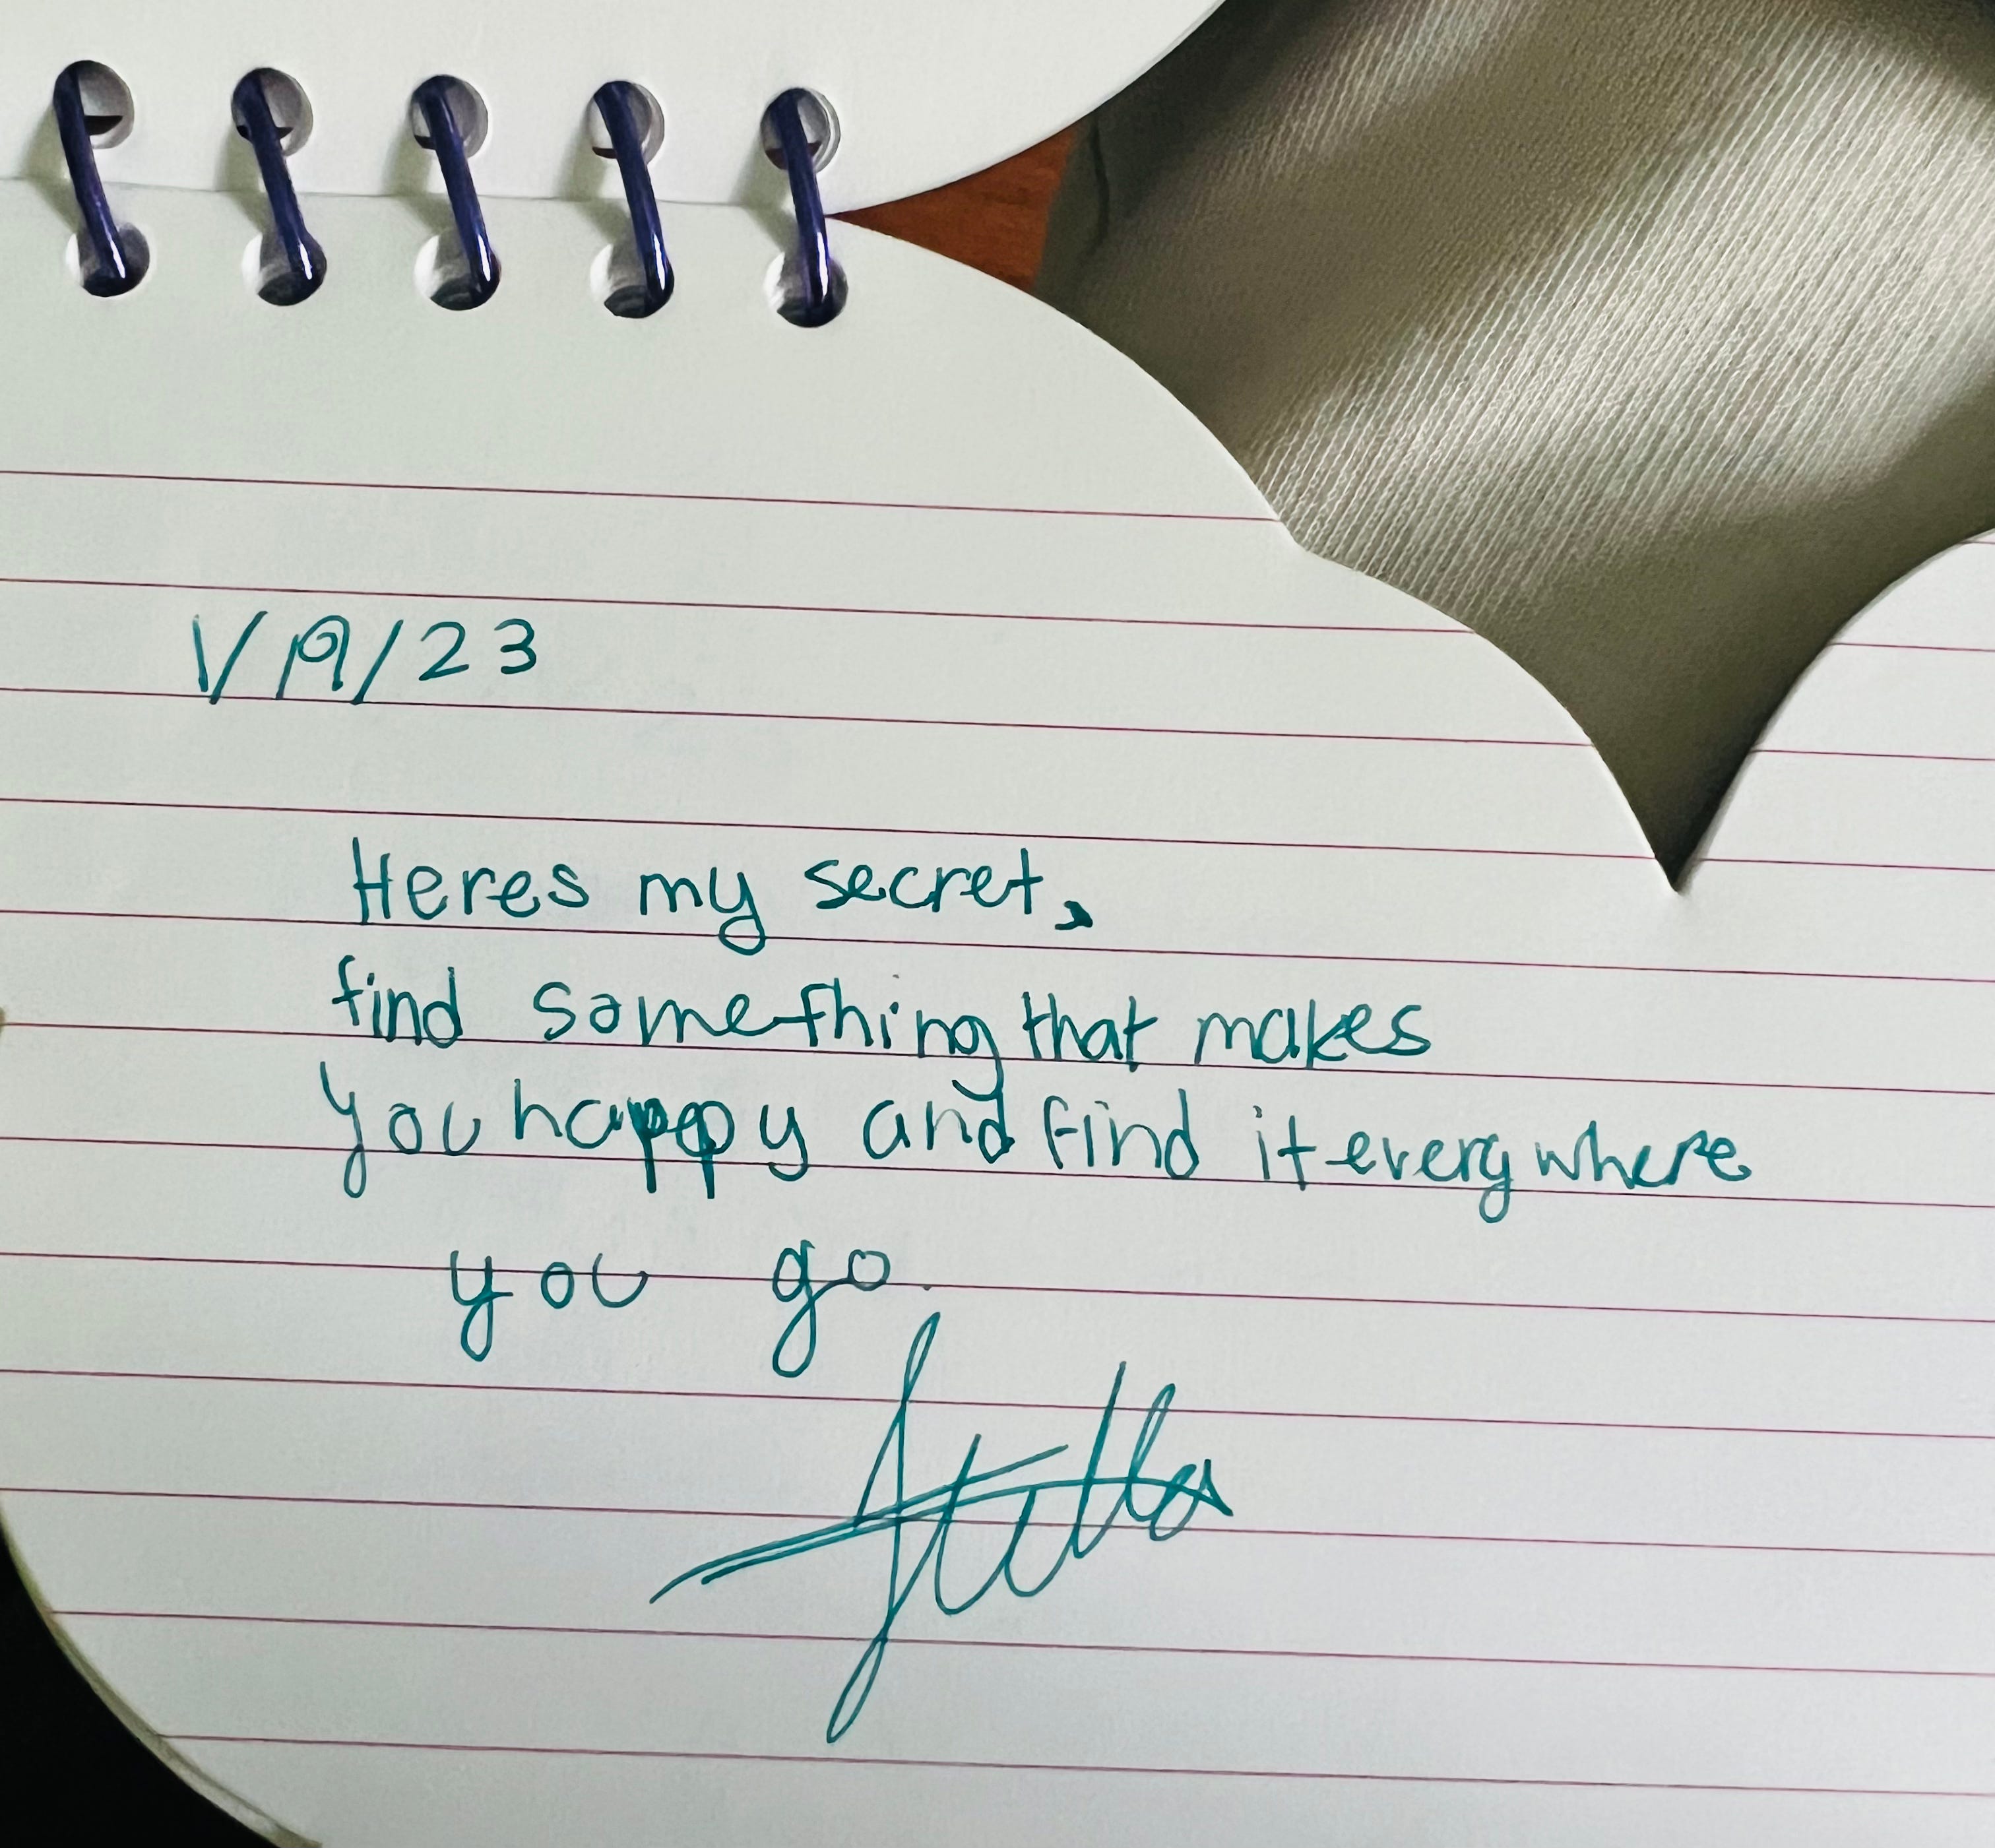 1/19/23
Heres my secret,
find something that makes
you happy and find it everywhere
you go.
Stella